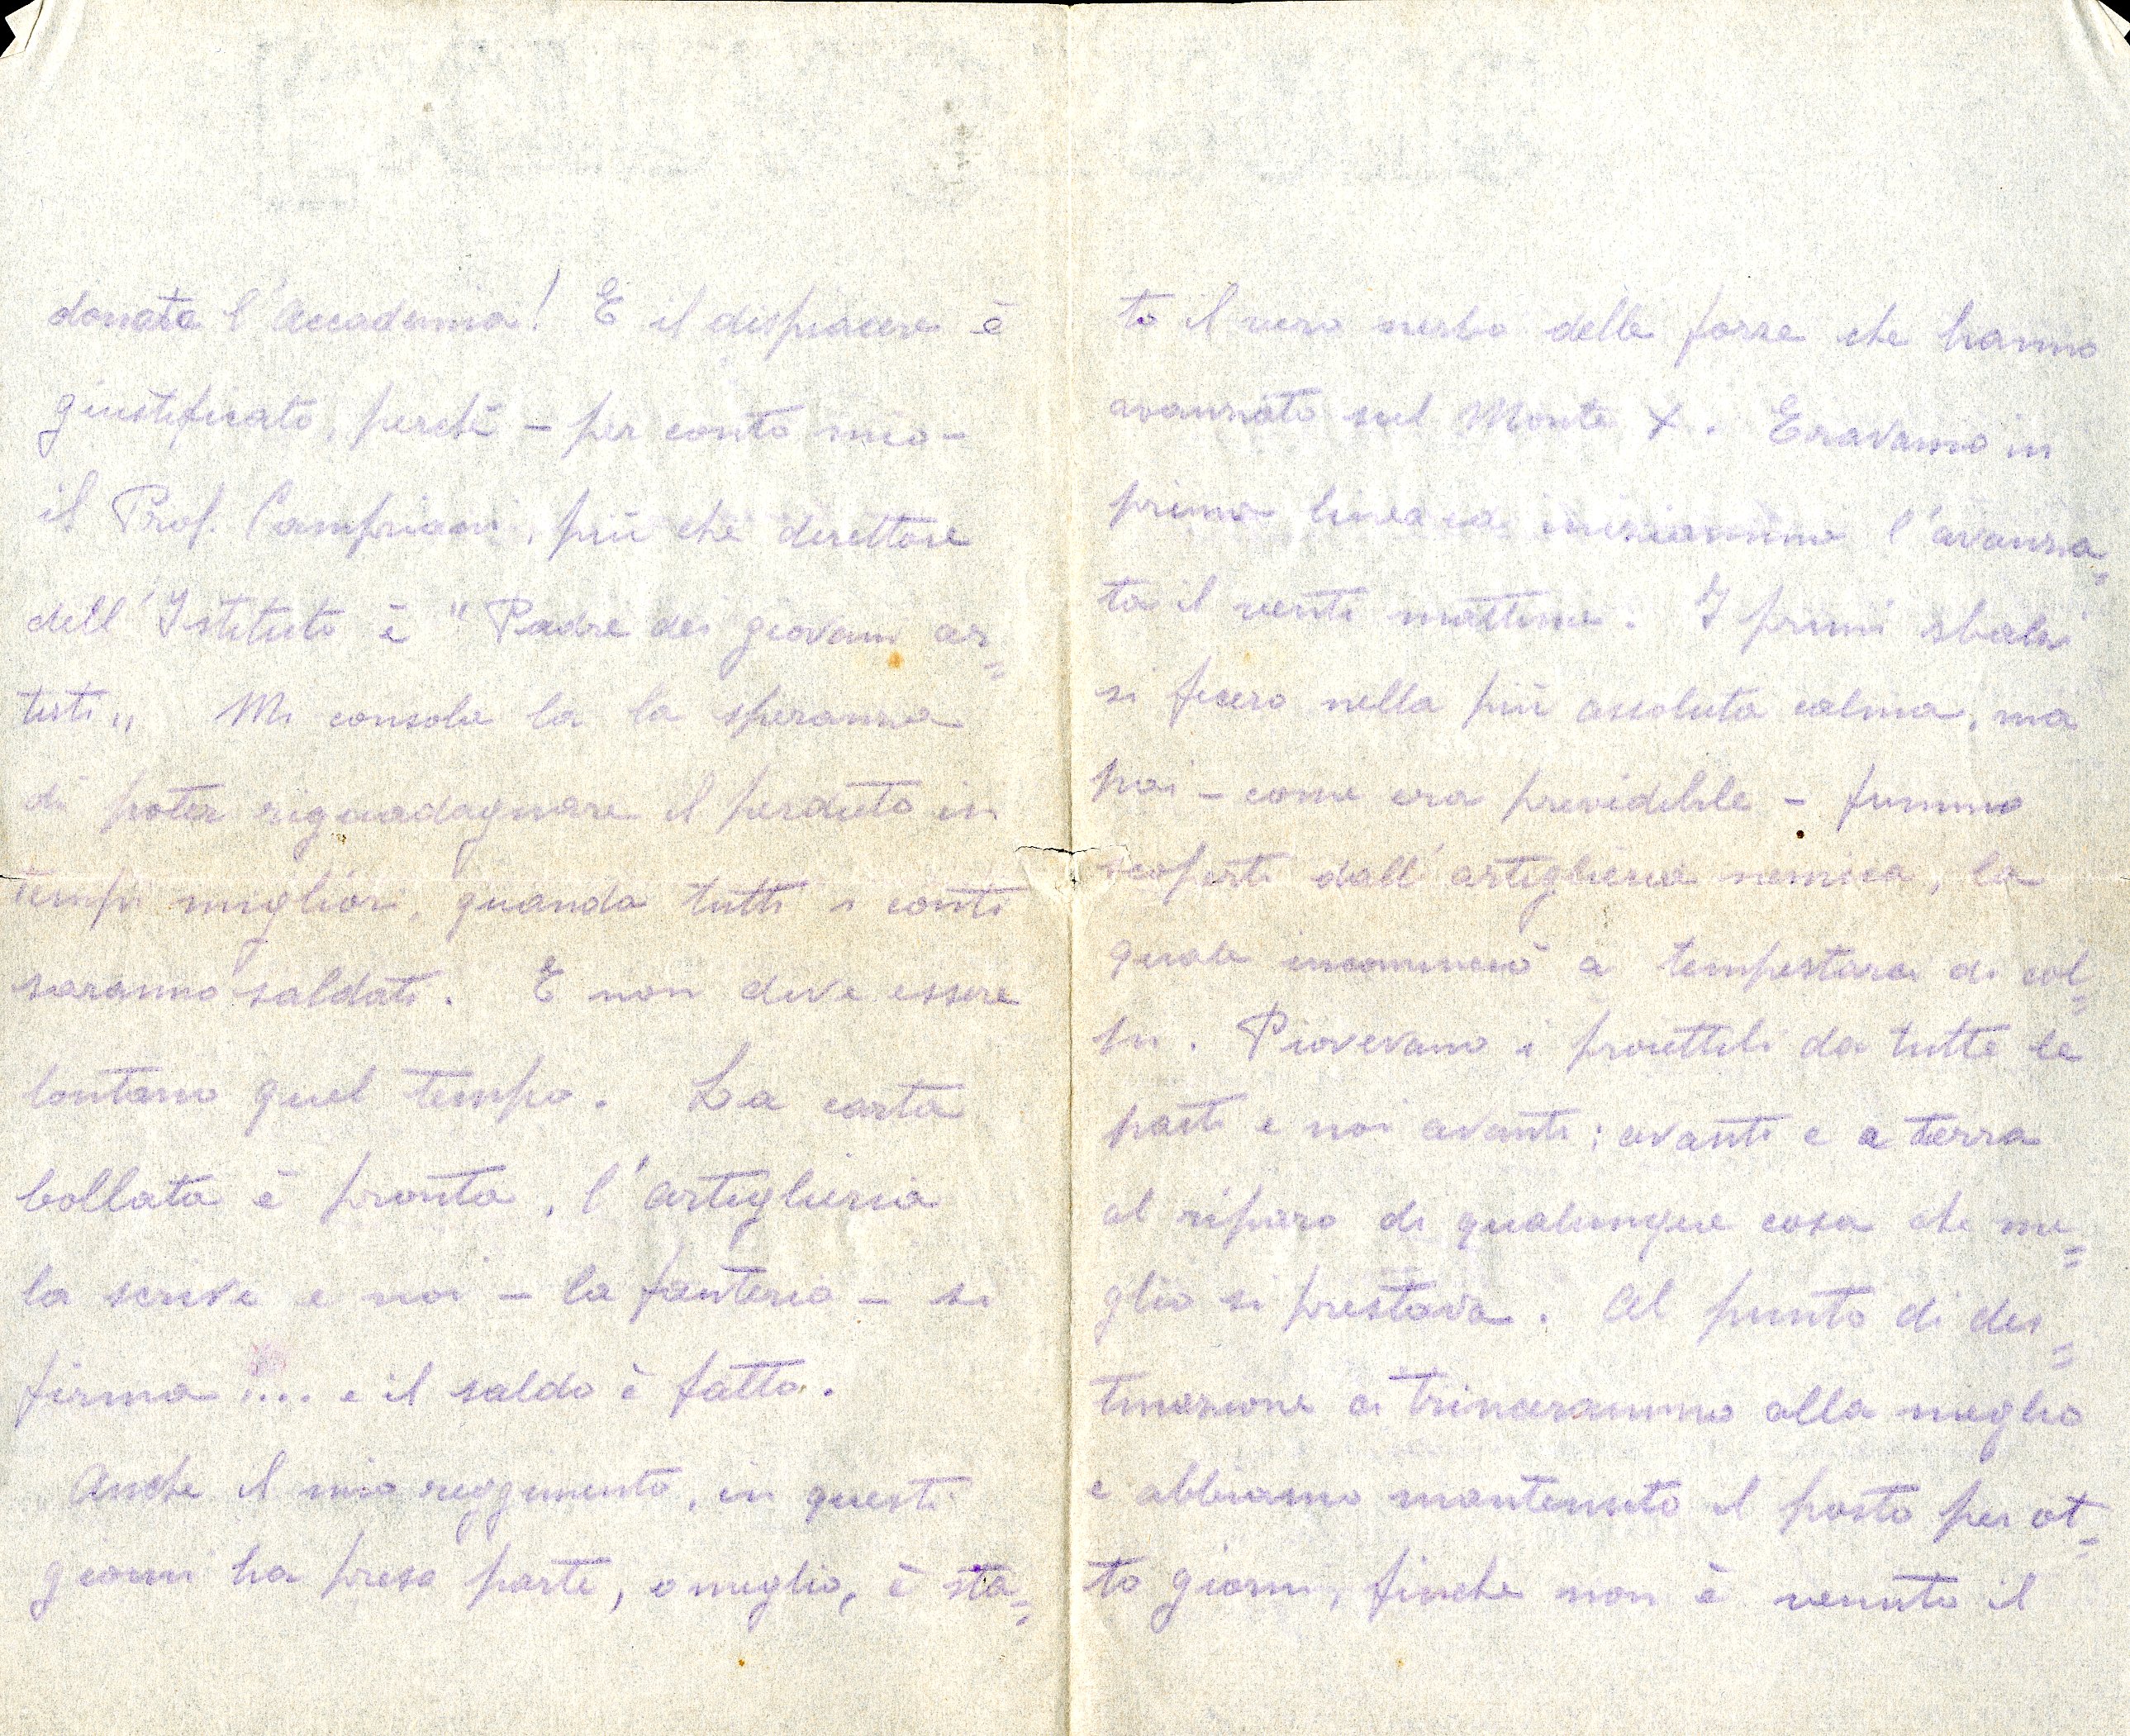 donata l'Accademia! E il dispiacere è
giustificato, perchè – per conto mio –
il Prof. Campriani, più che direttore
dell'Istituto è "Padre dei giovani ar=
tisti„ Mi consola la la speranza
di poter riguadagnare il perduto in
tempi migliori, quando tutti i conti
saranno saldati. E non deve essere
lontano quel tempo. La carta
bollata è pronta, l'artiglieria
la scrive e noi – la fanteria – si
firma .... e il saldo è fatto.
Anche il mio reggimento, in questi
giorni ha preso parte, o meglio, è sta=
to il vero nerbo delle forze che hanno
avanzato sul Monte X. Eravamo in
prima linea e iniziammo l'avanza=
ta il venti mattina. I primi sbalzi
si fecero nella più assoluta calma, ma
poi – come era previdibile – fummo
scoperti dall'artiglieria nemica, la
quale incominciò a tempestarci di col=
pi. Piovevano i proiettili da tutte le
parti e noi avanti; avanti e a terra
al riparo di qualunque cosa che me=
glio si prestava. Al punto di des=
tinazione ci trincerammo alla meglio
e abbiamo mantenuto il posto per ot=
to giorni, finche non è venuto il